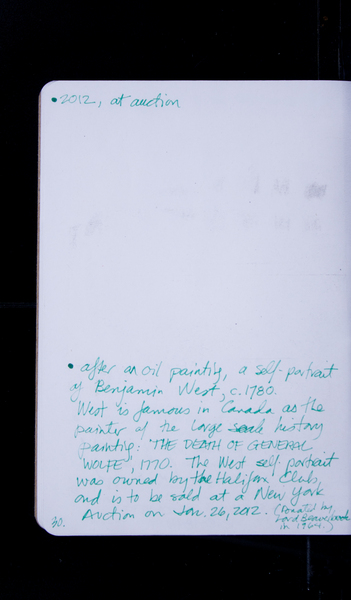 • 2012, at auction
• after an oil painting, a self-portrait
of Benjamin West, c. 1780.
West is famous in Canada as the
painter of the large scale history
painting: "THE DEATH OF GENERAL
WOLFE", 1770. The West self-portrait
was owned by the Halifax Club,
and is to be sold at a New York
Auction on Jan. 26, 2012. (Donated by
Lord Beaverbrook
in 1964.)
30.